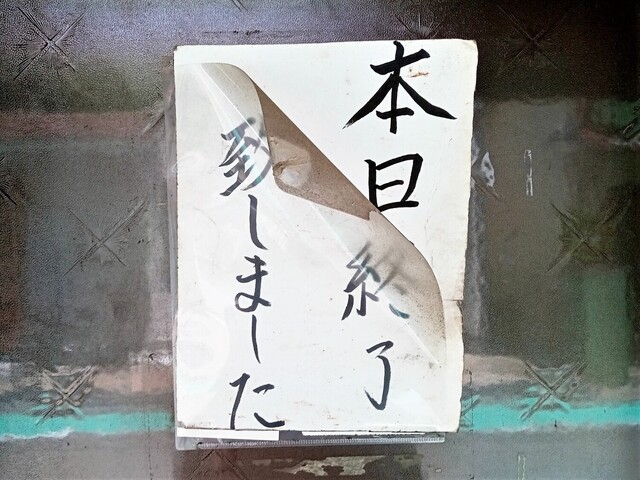 本日終了
致しました